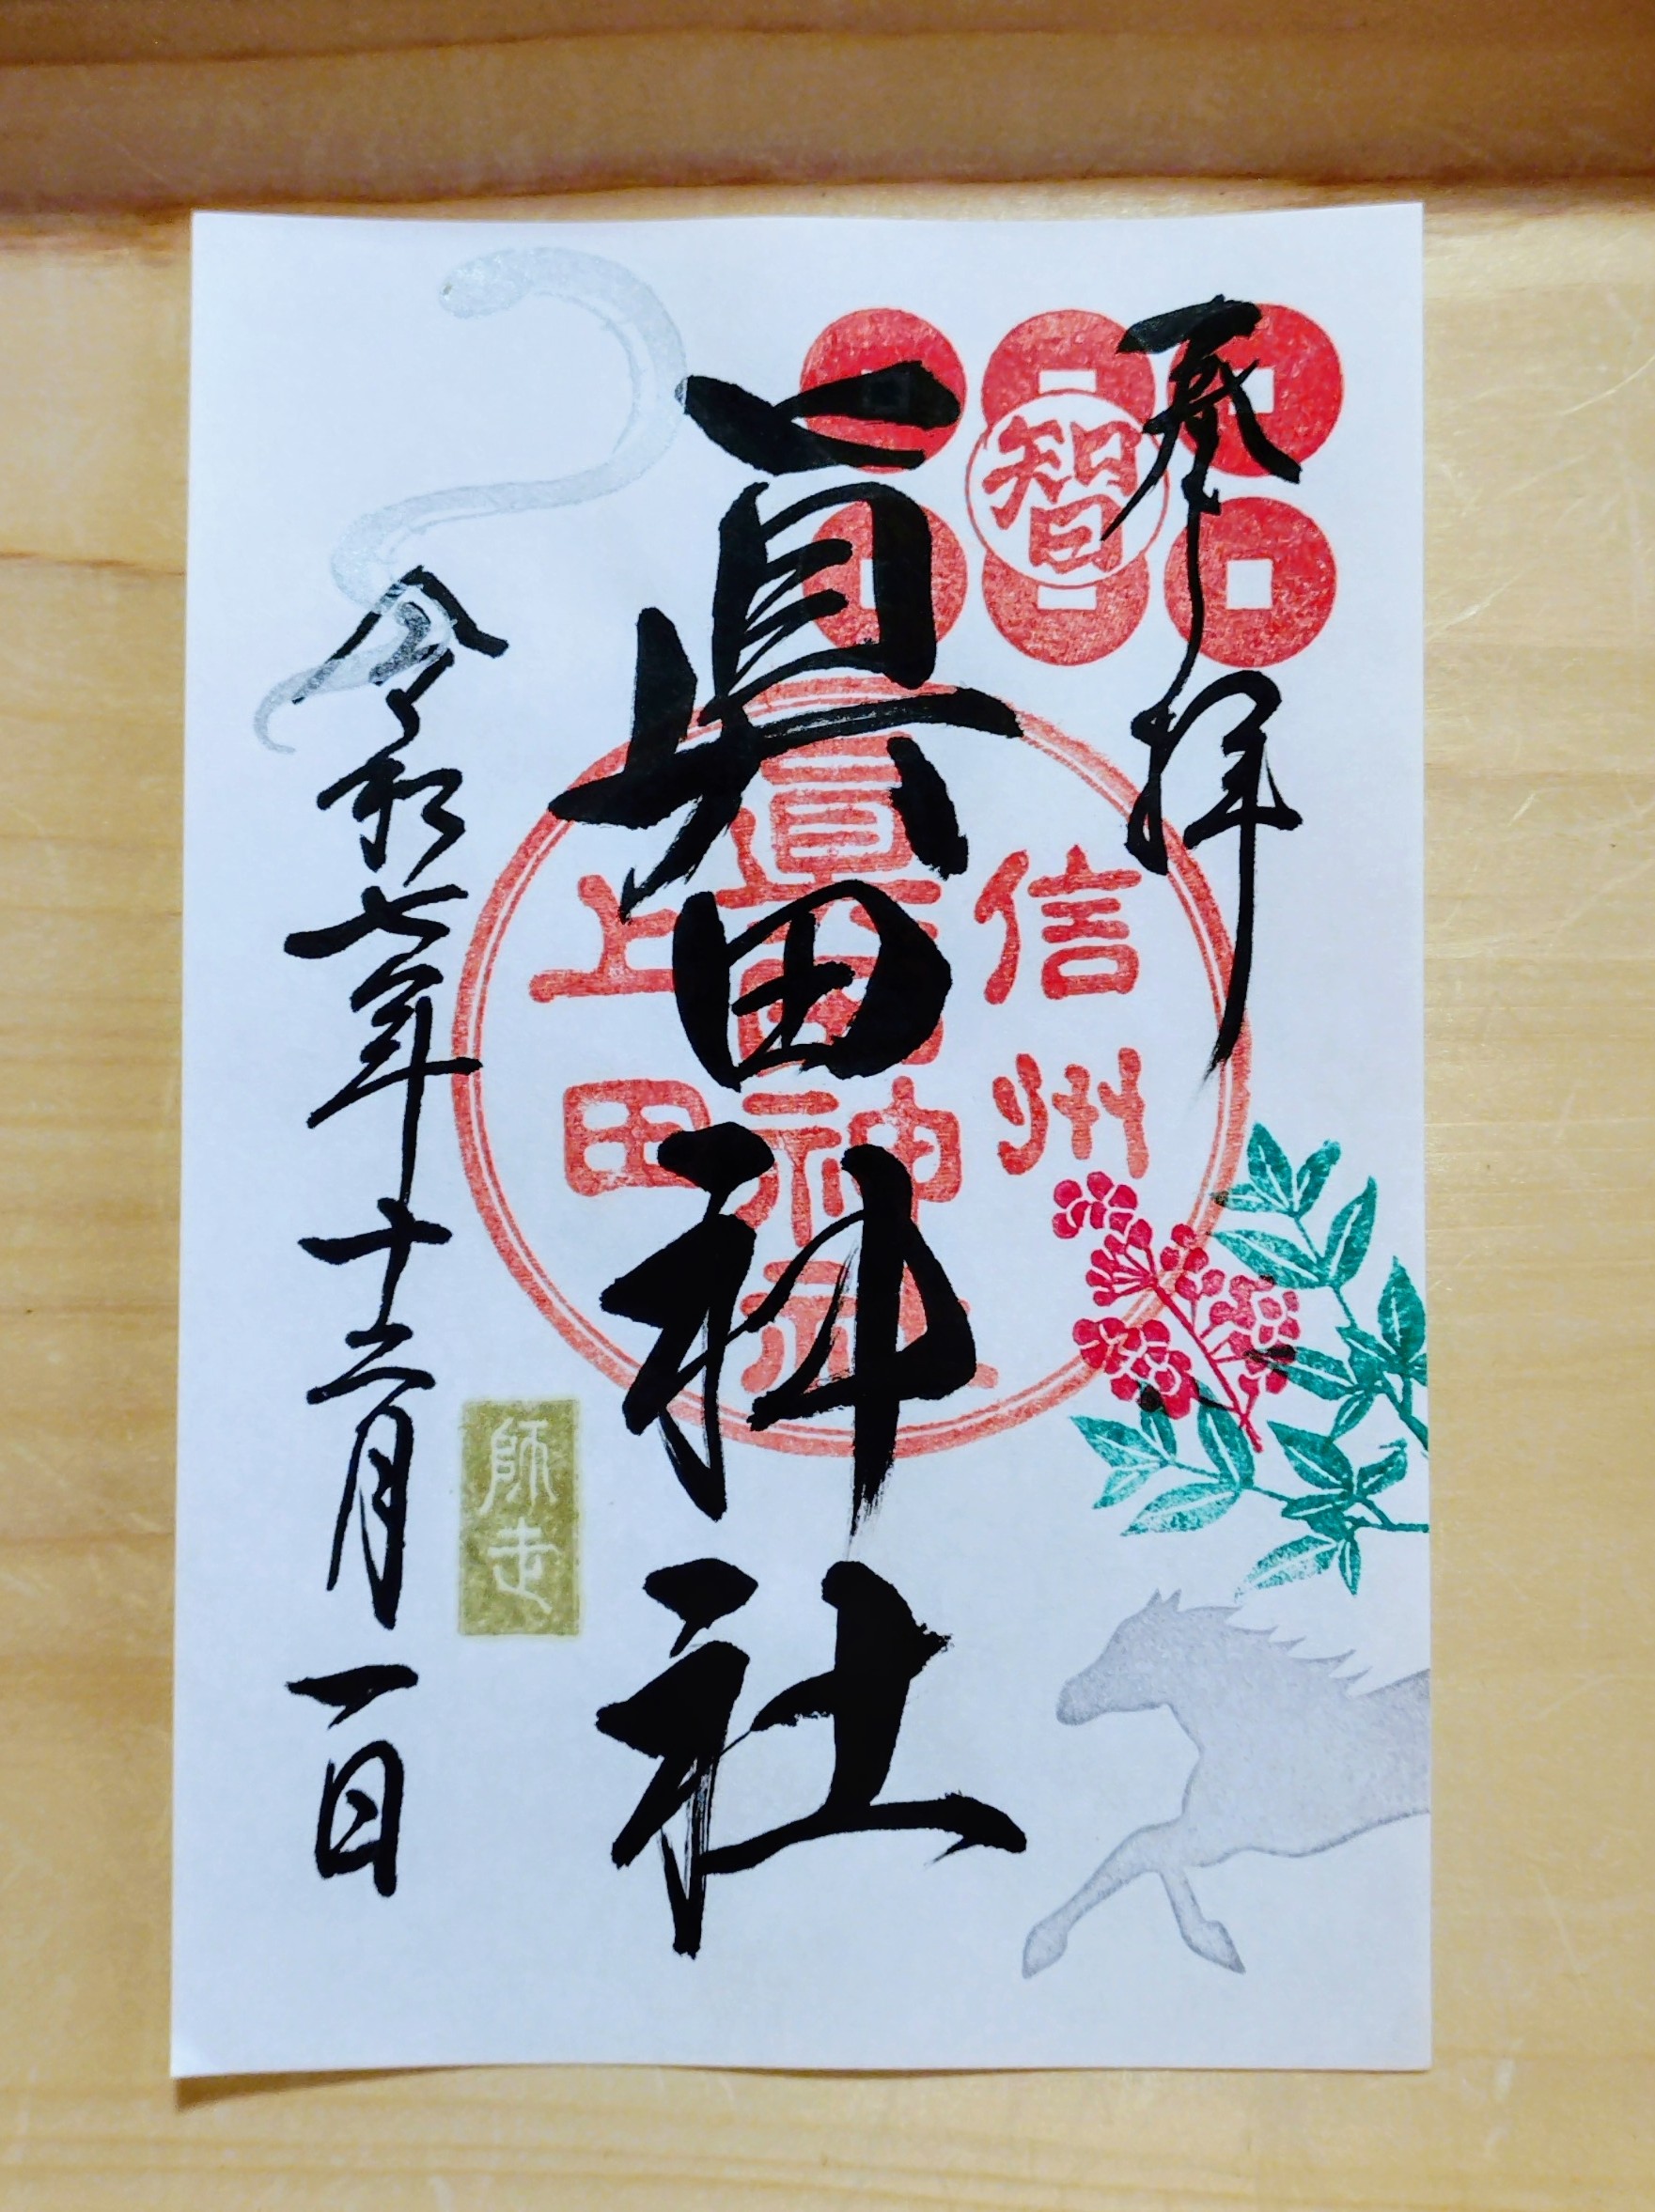 奉拝
智
眞田神社
信州
眞田神社
上田
師走
令和七年十二月一日